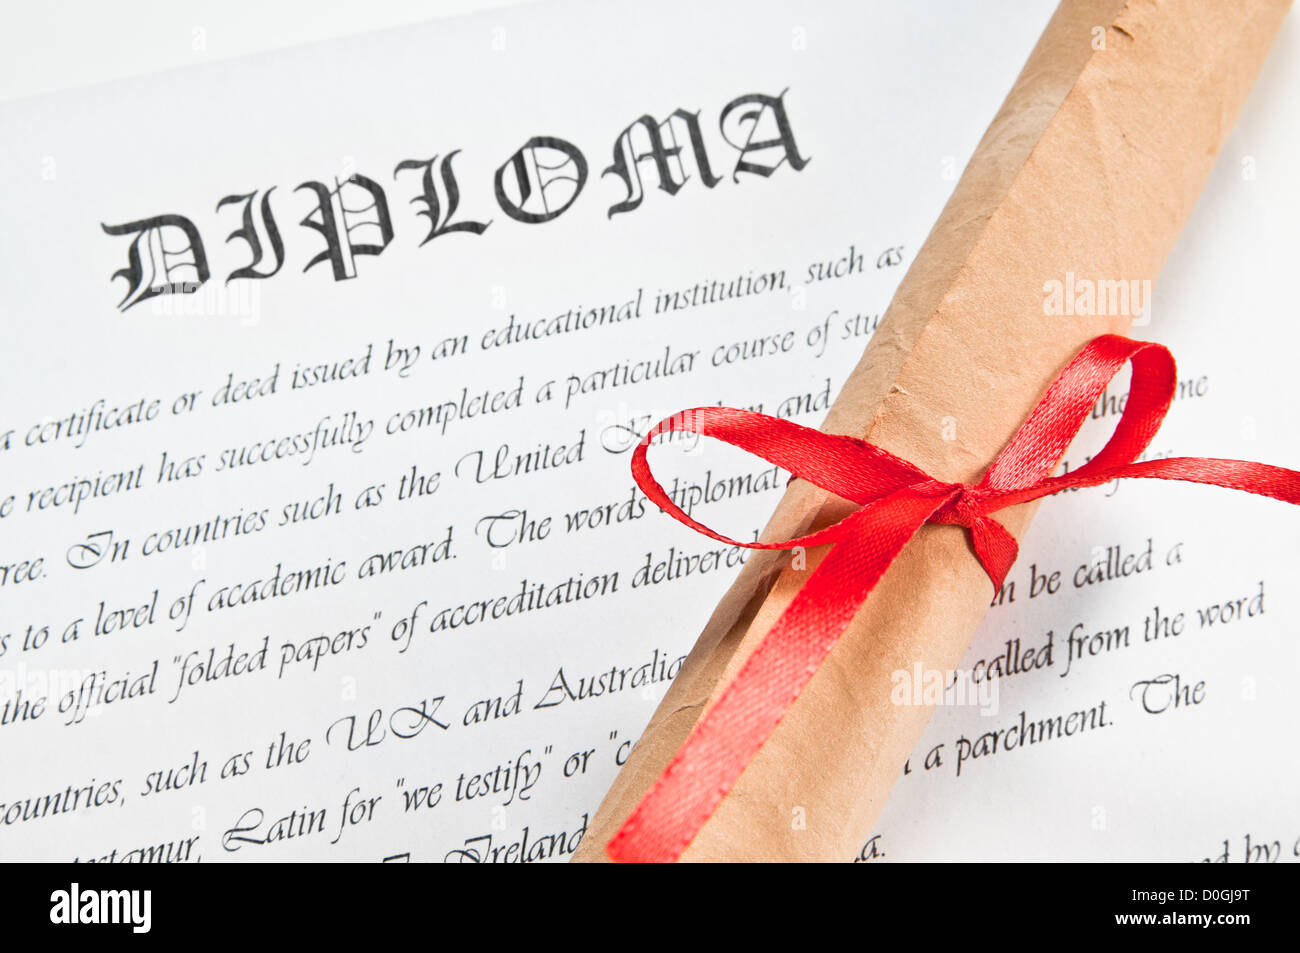 DIPLOMA
a certificate or deed issued by an educational institution, such as
recipient has successfully completed a particular course of
In countries such as the United Kingdom and
to a level of academic award. The words diploma
the official "folded papers" of accreditation delivered
be called a
such as the UK and Australia called from the word
Latin for "we testify" or a parchment. The
Ireland
by
alamy
Image ID: D0GJ9T
www.alamy.com